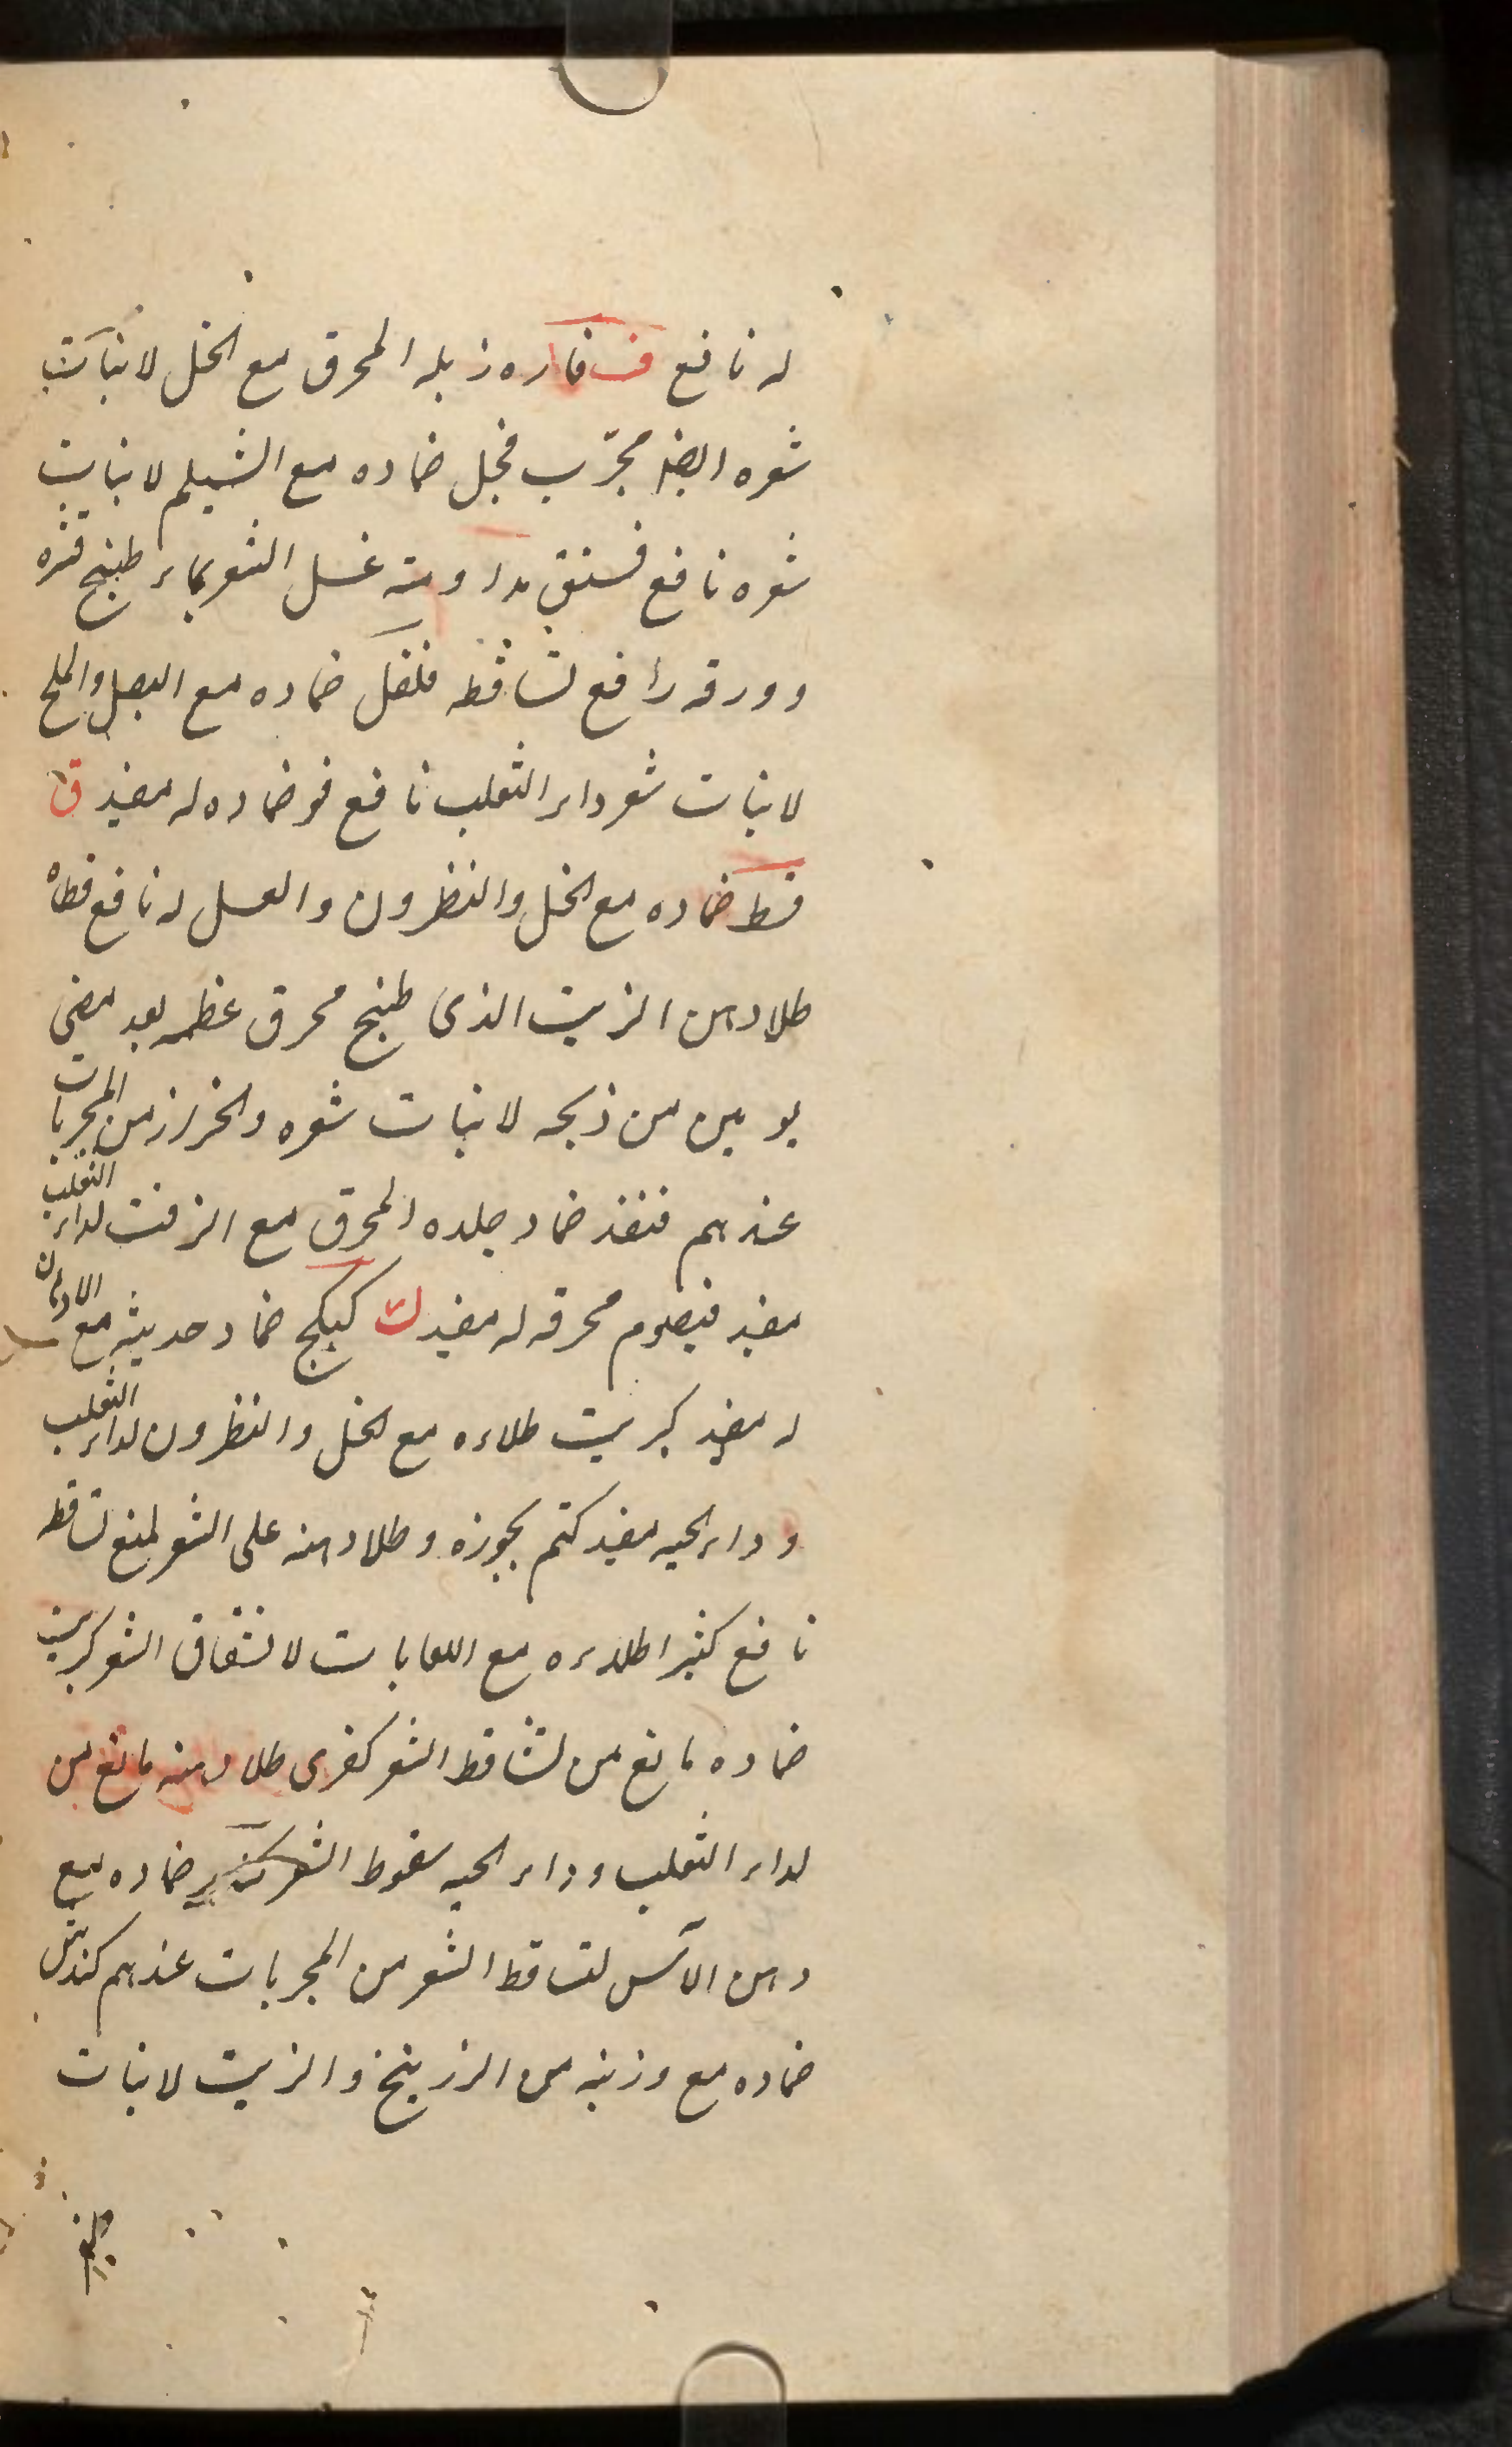 له نافع ف فاره زبله المحرق مع الخل لانبات
شعره ايضا مجرّب فجل ضماده مع الشيلم لانبات
شعره نافع فستق مداومة غسل الشعر بماء طبيخ قشره
وورقه رافع تساقطه فلفل ضماده مع البصل والملح
لانبات شعر داء الثعلب نافع فو ضماده له مفيد ق
قسط ضماده مع الخل والنطرون والعسل له نافع قطاه
طلا دهن الزيت الذى طبخ محرق عظمه بعد مضى
يومين من ذبحه لانبات شعره والخراز من المجربات
عندهم قنفذ ضماد جلده المحرق مع الزفت لداء الثعلب
مفيد قيصوم محرقه له مفيد ك كبيكج ضماد حديثه مع الادهان
له مفيد كبريت طلاءه مع الخل والنطرون لداء الثعلب
وداء الحيه مفيد كتم بخوره وطلا دهنه على الشعر لمنع تساقطه
نافع كثيرا طلاءه مع اللعابات لانشقاق الشعر كبريت
ضماده مانع من تساقط الشعر كفرى طلا دهنه مانع من
لداء الثعلب وداء الحيه سقوط الشعر ضماده مع
دهن الآس لتساقط الشعر من المجربات عندهم كندش
ضماده مع وزنه من الزرنيخ والزيت لانبات